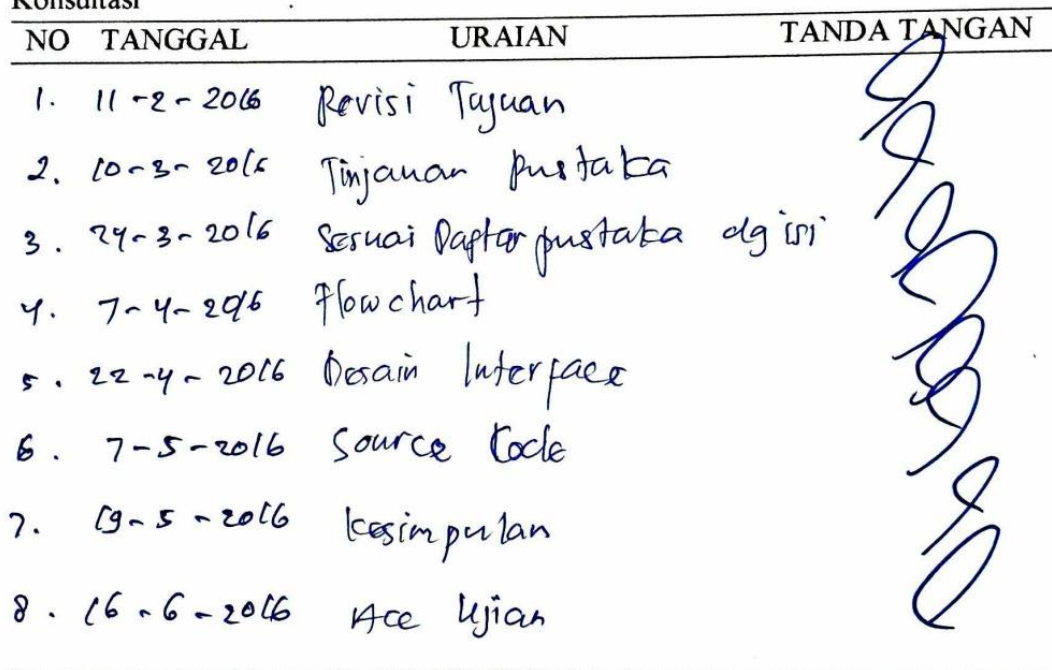 Konsultasi :
NO TANGGAL URAIAN TANDA TANGAN
1. 11-2-2016 Revisi Tujuan
2. 10-3-2016 Tinjauan pustaka
3. 24-3-2016 Sesuai Daptar pustaka dg isi
4. 7-4-2016 Flowchart
5. 22-4-2016 Desain Interface
6. 7-5-2016 Source Code
7. 19-5-2016 Kesimpulan
8. 16-6-2016 Acc Ujian